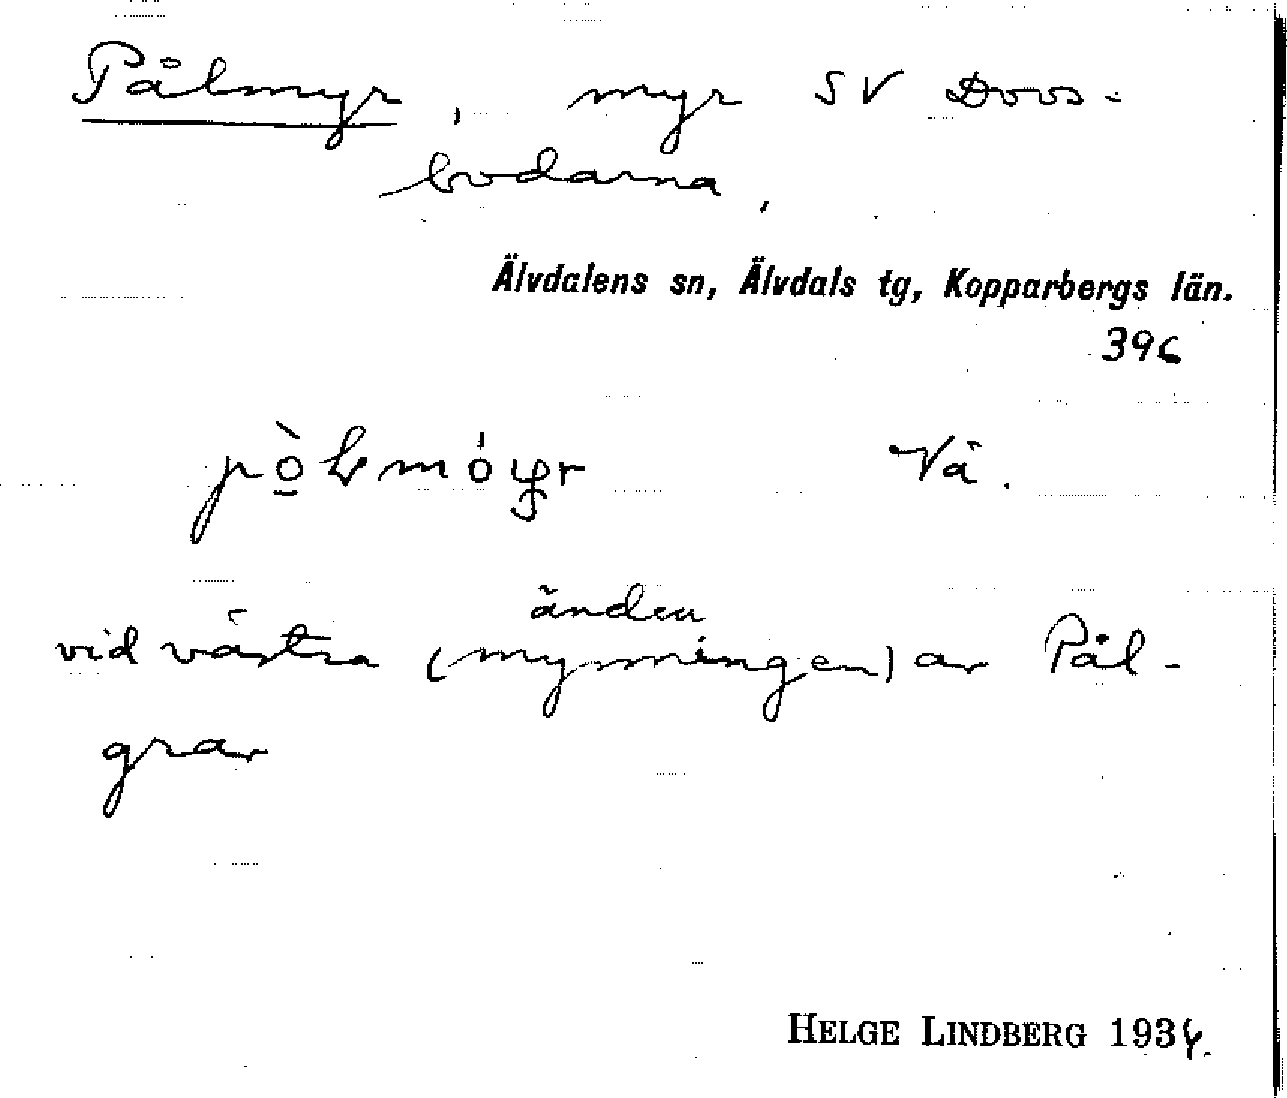 Pålmyr, myr SV Dovs-
bodarna,
Älvdalens sn, Älvdals tg, Kopparbergs län.
396
Vä.
änden
vid västra (mynningen) av Pål-
grav
HELGE LINDBERG 1934.